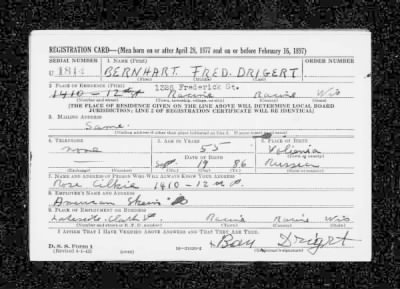 REGISTRATION CARD—(Men born on or after April 28, 1877 and on or before February 16, 1897)
SERIAL NUMBER 1. NAME (Print) ORDER NUMBER
U 1814 BERNHART. FRED. DRIGERT
(First) (Middle) (Last)
2. PLACE OF RESIDENCE (Print) 1226 Frederick St.
1410 - 12th Racine Racine Wis
(Number and street) (Town, township, village, or city) (County) (State)
[THE PLACE OF RESIDENCE GIVEN ON THE LINE ABOVE WILL DETERMINE LOCAL BOARD
JURISDICTION; LINE 2 OF REGISTRATION CERTIFICATE WILL BE IDENTICAL]
3. MAILING ADDRESS
Same.
4. TELEPHONE 5. AGE IN YEARS 6. PLACE OF BIRTH
none 55
DATE OF BIRTH
19 86 Russia
(Mo.) (Day) (Yr.)
7. NAME AND ADDRESS OF PERSON WHO WILL ALWAYS KNOW YOUR ADDRESS
Rose 1410 - 12
8. EMPLOYER'S NAME AND ADDRESS
American
9. PLACE OF EMPLOYMENT OR BUSINESS
Racine Racine Wis
(Number and street or R. F. D. number) (Town) (County) (State)
I AFFIRM THAT I HAVE VERIFIED ABOVE ANSWERS AND THAT THEY ARE TRUE.
D. S. S. Form 1
(Revised 4-1-42) Drigert